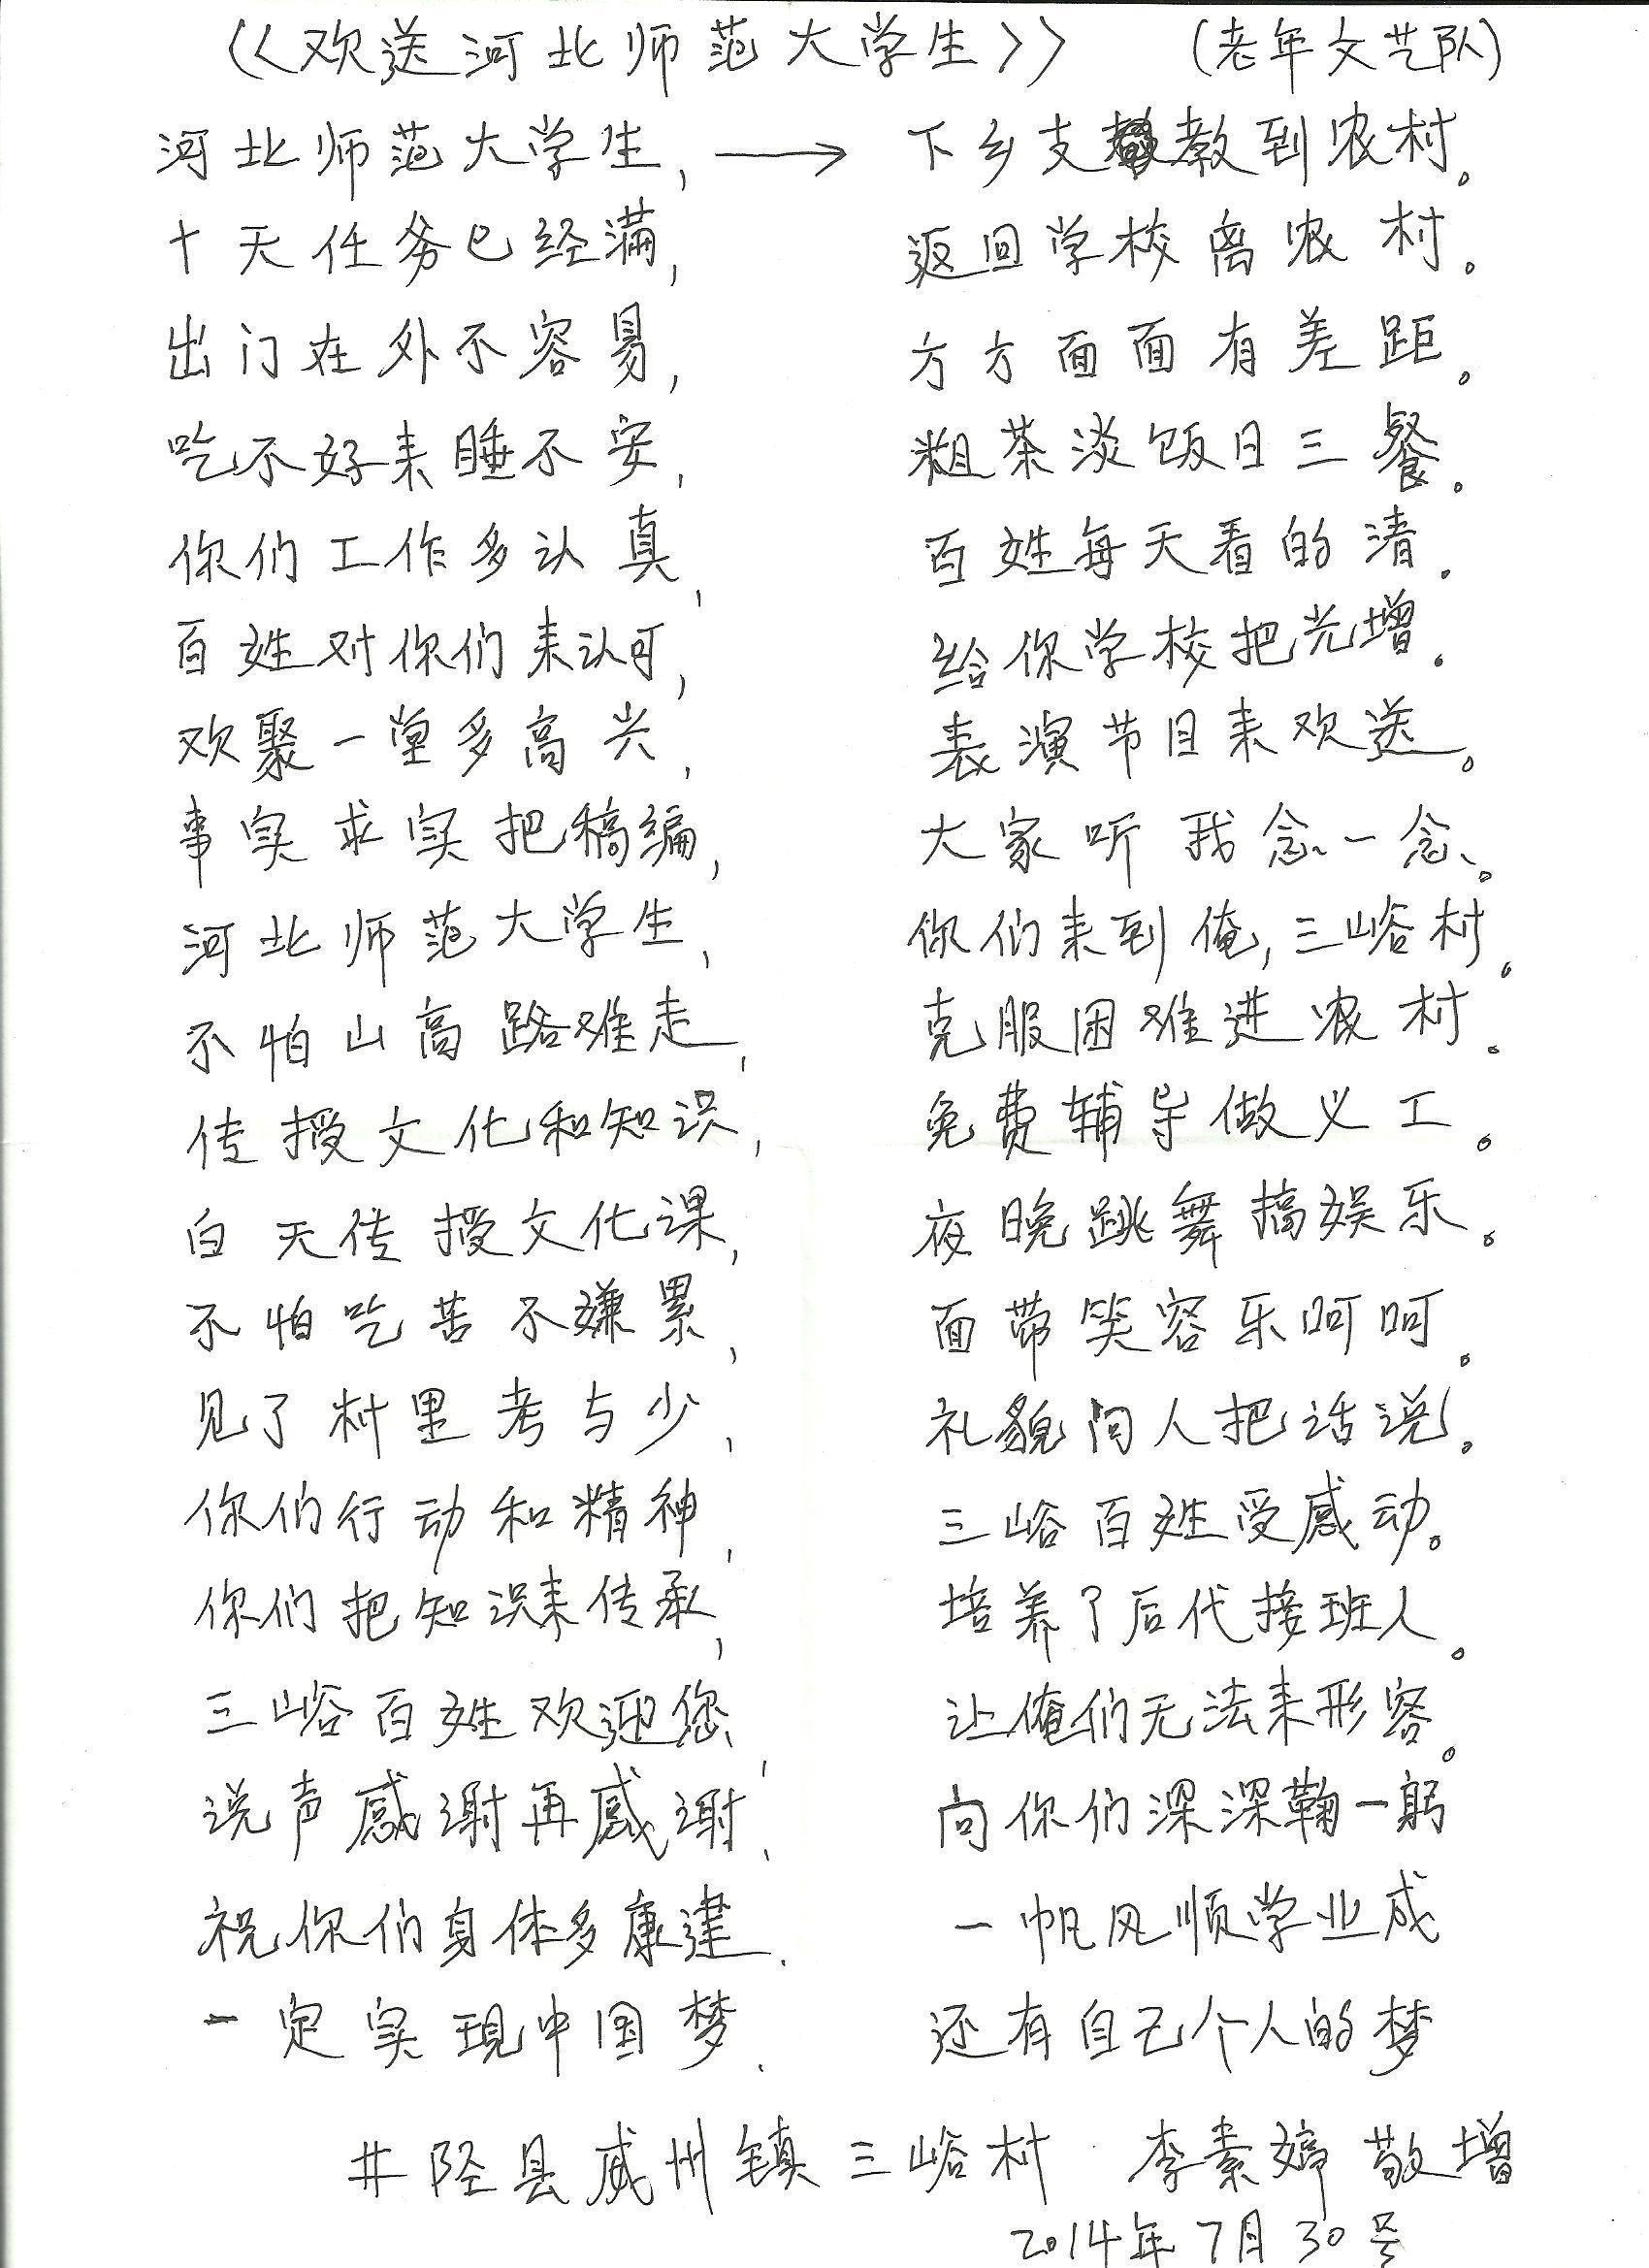 《欢送河北师范大学生》 (老年文艺队)
河北师范大学生, → 下乡支教到农村。
十天任务已经满, 返回学校离农村。
出门在外不容易, 方方面面有差距。
吃不好来睡不安, 粗茶淡饭日三餐。
你们工作多认真, 百姓每天看的清.
百姓对你们来认可, 给你学校把光增.
欢聚一堂多高兴, 表演节目来欢送。
事实求实把稿编, 大家听我念一念。
河北师范大学生, 你们来到俺,三峪村。
不怕山高路难走, 克服困难进农村。
传授文化和知识, 免费辅导做义工。
白天传授文化课, 夜晚跳舞搞娱乐。
不怕吃苦不嫌累, 面带笑容乐呵呵。
见了村里老与少, 礼貌问人把话说。
你们行动和精神, 三峪百姓受感动。
你们把知识来传承, 培养了后代接班人。
三峪百姓欢迎您, 让俺们无法来形容。
说声感谢再感谢, 向你们深深鞠一躬
祝你们身体多康健. 一帆风顺学业成
一定实现中国梦. 还有自己个人的梦
井陉县威州镇三峪村 李素婷敬增
2014年7月30号